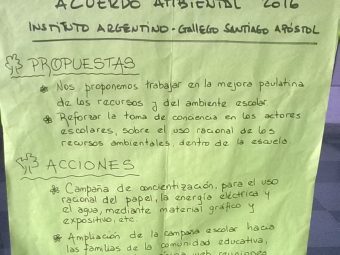 ACUERDO AMBIENTAL 2016
INSTITUTO ARGENTINO-GALLEGO SANTIAGO APÓSTOL
PROPUESTAS
Nos proponemos trabajar en la mejora paulatina
de los recursos y del ambiente escolar.
Reforzar la toma de conciencia en los actores
escolares, sobre el uso racional de los
recursos ambientales, dentro de la escuela.
ACCIONES
Campaña de concientización, para el uso
racional del papel, la energía eléctrica y
el agua, mediante material gráfico y
expositivo, etc.
Ampliación de la campaña escolar hacia
las familias de la comunidad educativa,
web reuniones